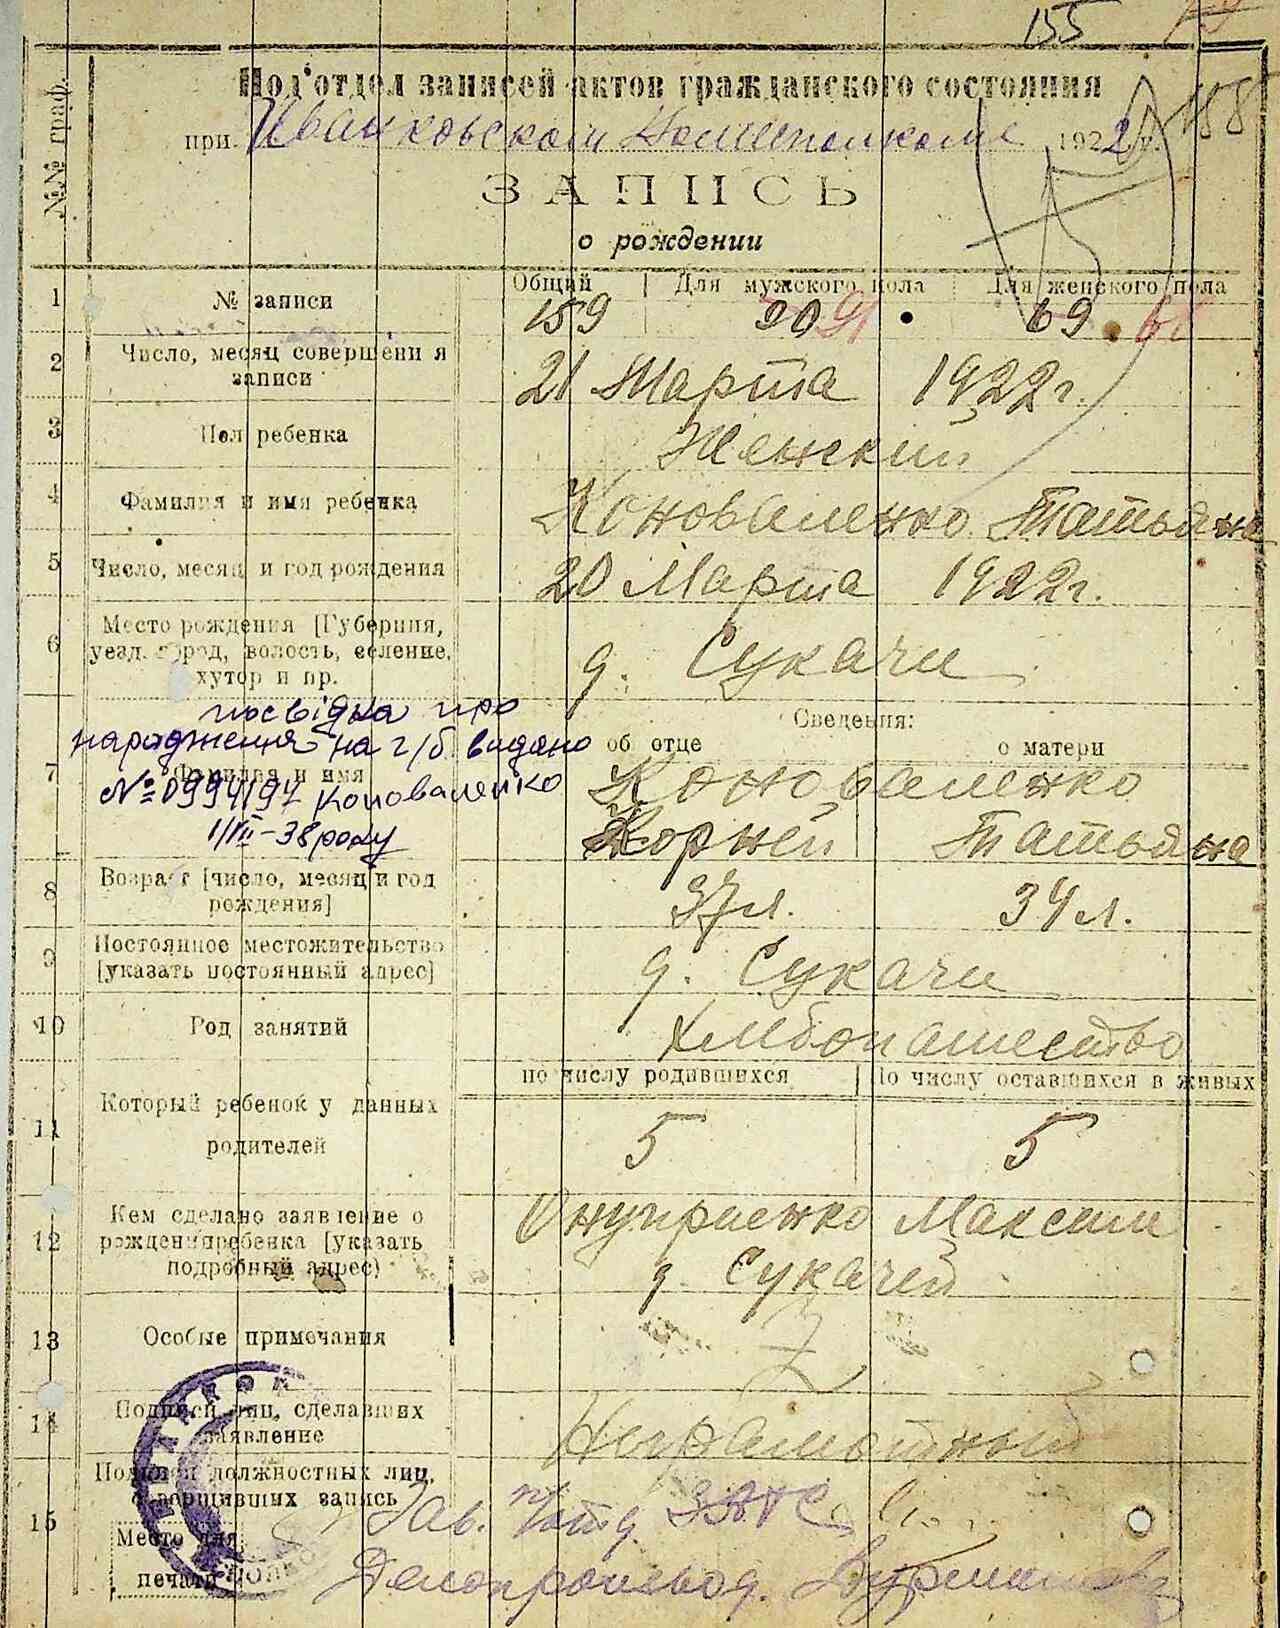 155
158
№№ граф.
Под'отдел записей актов гражданского состояния
при Иванковском Волисполкоме 1922 г.
ЗАПИСЬ
о рождении
1 № записи Общий Для мужского пола Для женского пола
159 90 91 69
2 Число, месяц совершения записи 21 Марта 1922 г.
3 Пол ребенка Женский
4 Фамилия и имя ребенка Коноваленко Татьяна
5 Число, месяц и год рождения 20 Марта 1922 г.
6 Место рождения [Губерния,
уезд. город, волость, селение,
хутор и пр.
д. Сукачи
посвідка про
народження на г/б видано
№ 0994194 Коноваленко
1/VII-38 року
Сведения:
об отце о матери
7 Фамилия и имя Коноваленко
Корней Татьяна
8 Возраст [число, месяц и год
рождения]
37 л. 34 л.
9 Постоянное местожительство
[указать постоянный адрес]
д. Сукачи
10 Род занятий Хлебопашество
по числу родившихся По числу оставшихся в живых
11 Который ребенок у данных
родителей
5 5
12 Кем сделано заявление о
рождении ребенка [указать
подробный адрес)
Онуприенко Максим
д. Сукачей
13 Особые примечания Z
14 Подписи лиц, сделавших
заявление
Неграмотный
15 Подписи должностных лиц,
совершивших запись
Зав. п/отд. ЗАГС
Место для
печати
Делопроизвод.